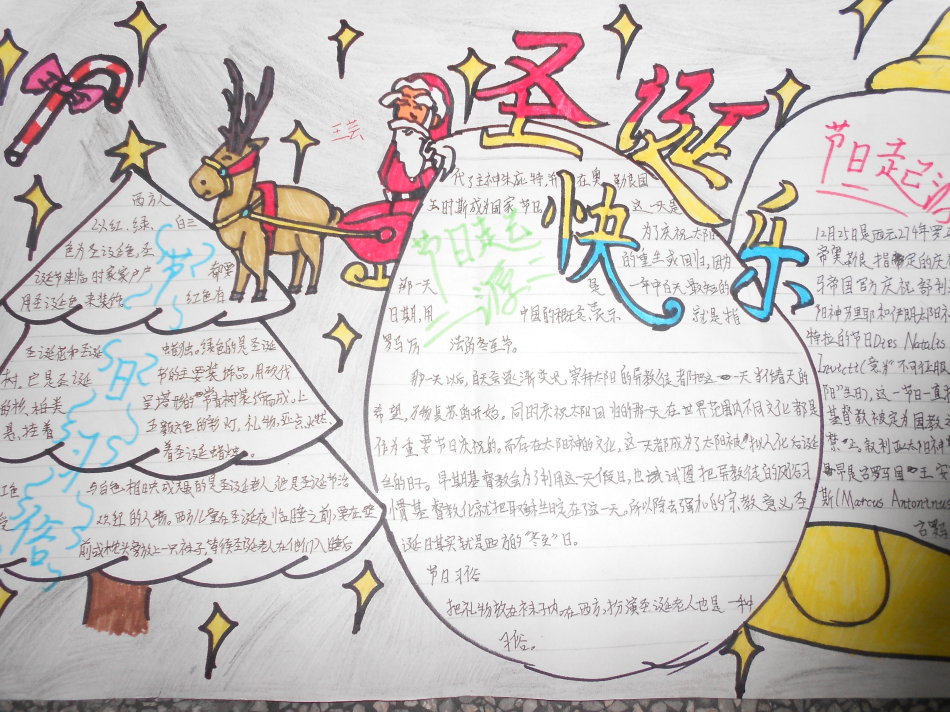 圣诞快乐
王芸
节日习俗
西方人
以红、绿、白三
色为圣诞色,圣
诞节来临时家家户户都要
用圣诞色来装饰。红色有
圣诞花和圣诞
蜡烛。绿色的是圣诞
树。它是圣诞
节的主要装饰品,用砍伐
的杉、柏类
呈塔形的常青树装饰而成。上
悬挂着
五颜六色的彩灯、礼物
着圣诞蜡烛。
红色
与白色相映成趣的是圣诞老人,他是圣诞节活
欢红的人物。西方儿童在圣诞夜临睡之前,要在壁
前或枕头旁放上一只袜子,等候圣诞老人在他们入睡后
节日起源
代了主神朱庇特,并在奥勒良
时期成为国家节日。这一天是
为了庆祝太阳
的重生或回归,因为
那一天是一年中白天最短的
日期,用中国的概念表示就是指
罗马历法的冬至节。
那一天以后,白天会逐渐变长,崇拜太阳的异教徒都把这一天当作春天的
希望,万物复苏的开始。同时庆祝太阳回归的那一天在世界范围内不同文化都是
作为重要节日庆祝的。而存在太阳神的文化,这一天都成为了太阳神被拟人化后诞
生的日子。早期基督教会为了利用这一天假日,也域试图把异教徒的风俗习
惯基督教化就把耶稣生日定在这一天。所以除去强加的宗教意义,圣
诞日其实就是西方的“冬至”日。
节日习俗
把礼物放在袜子内。在西方,扮演圣诞老人也是一种
习俗。
节日起
12月25日是西元274年罗
帝
马帝国官方庆祝叙利
阳神
特拉的节日Dies Natales
阳”生日),这一节日一直
基督教被定为国教
禁止。叙利亚太阳神
最早是古罗马国王
斯(Marcus